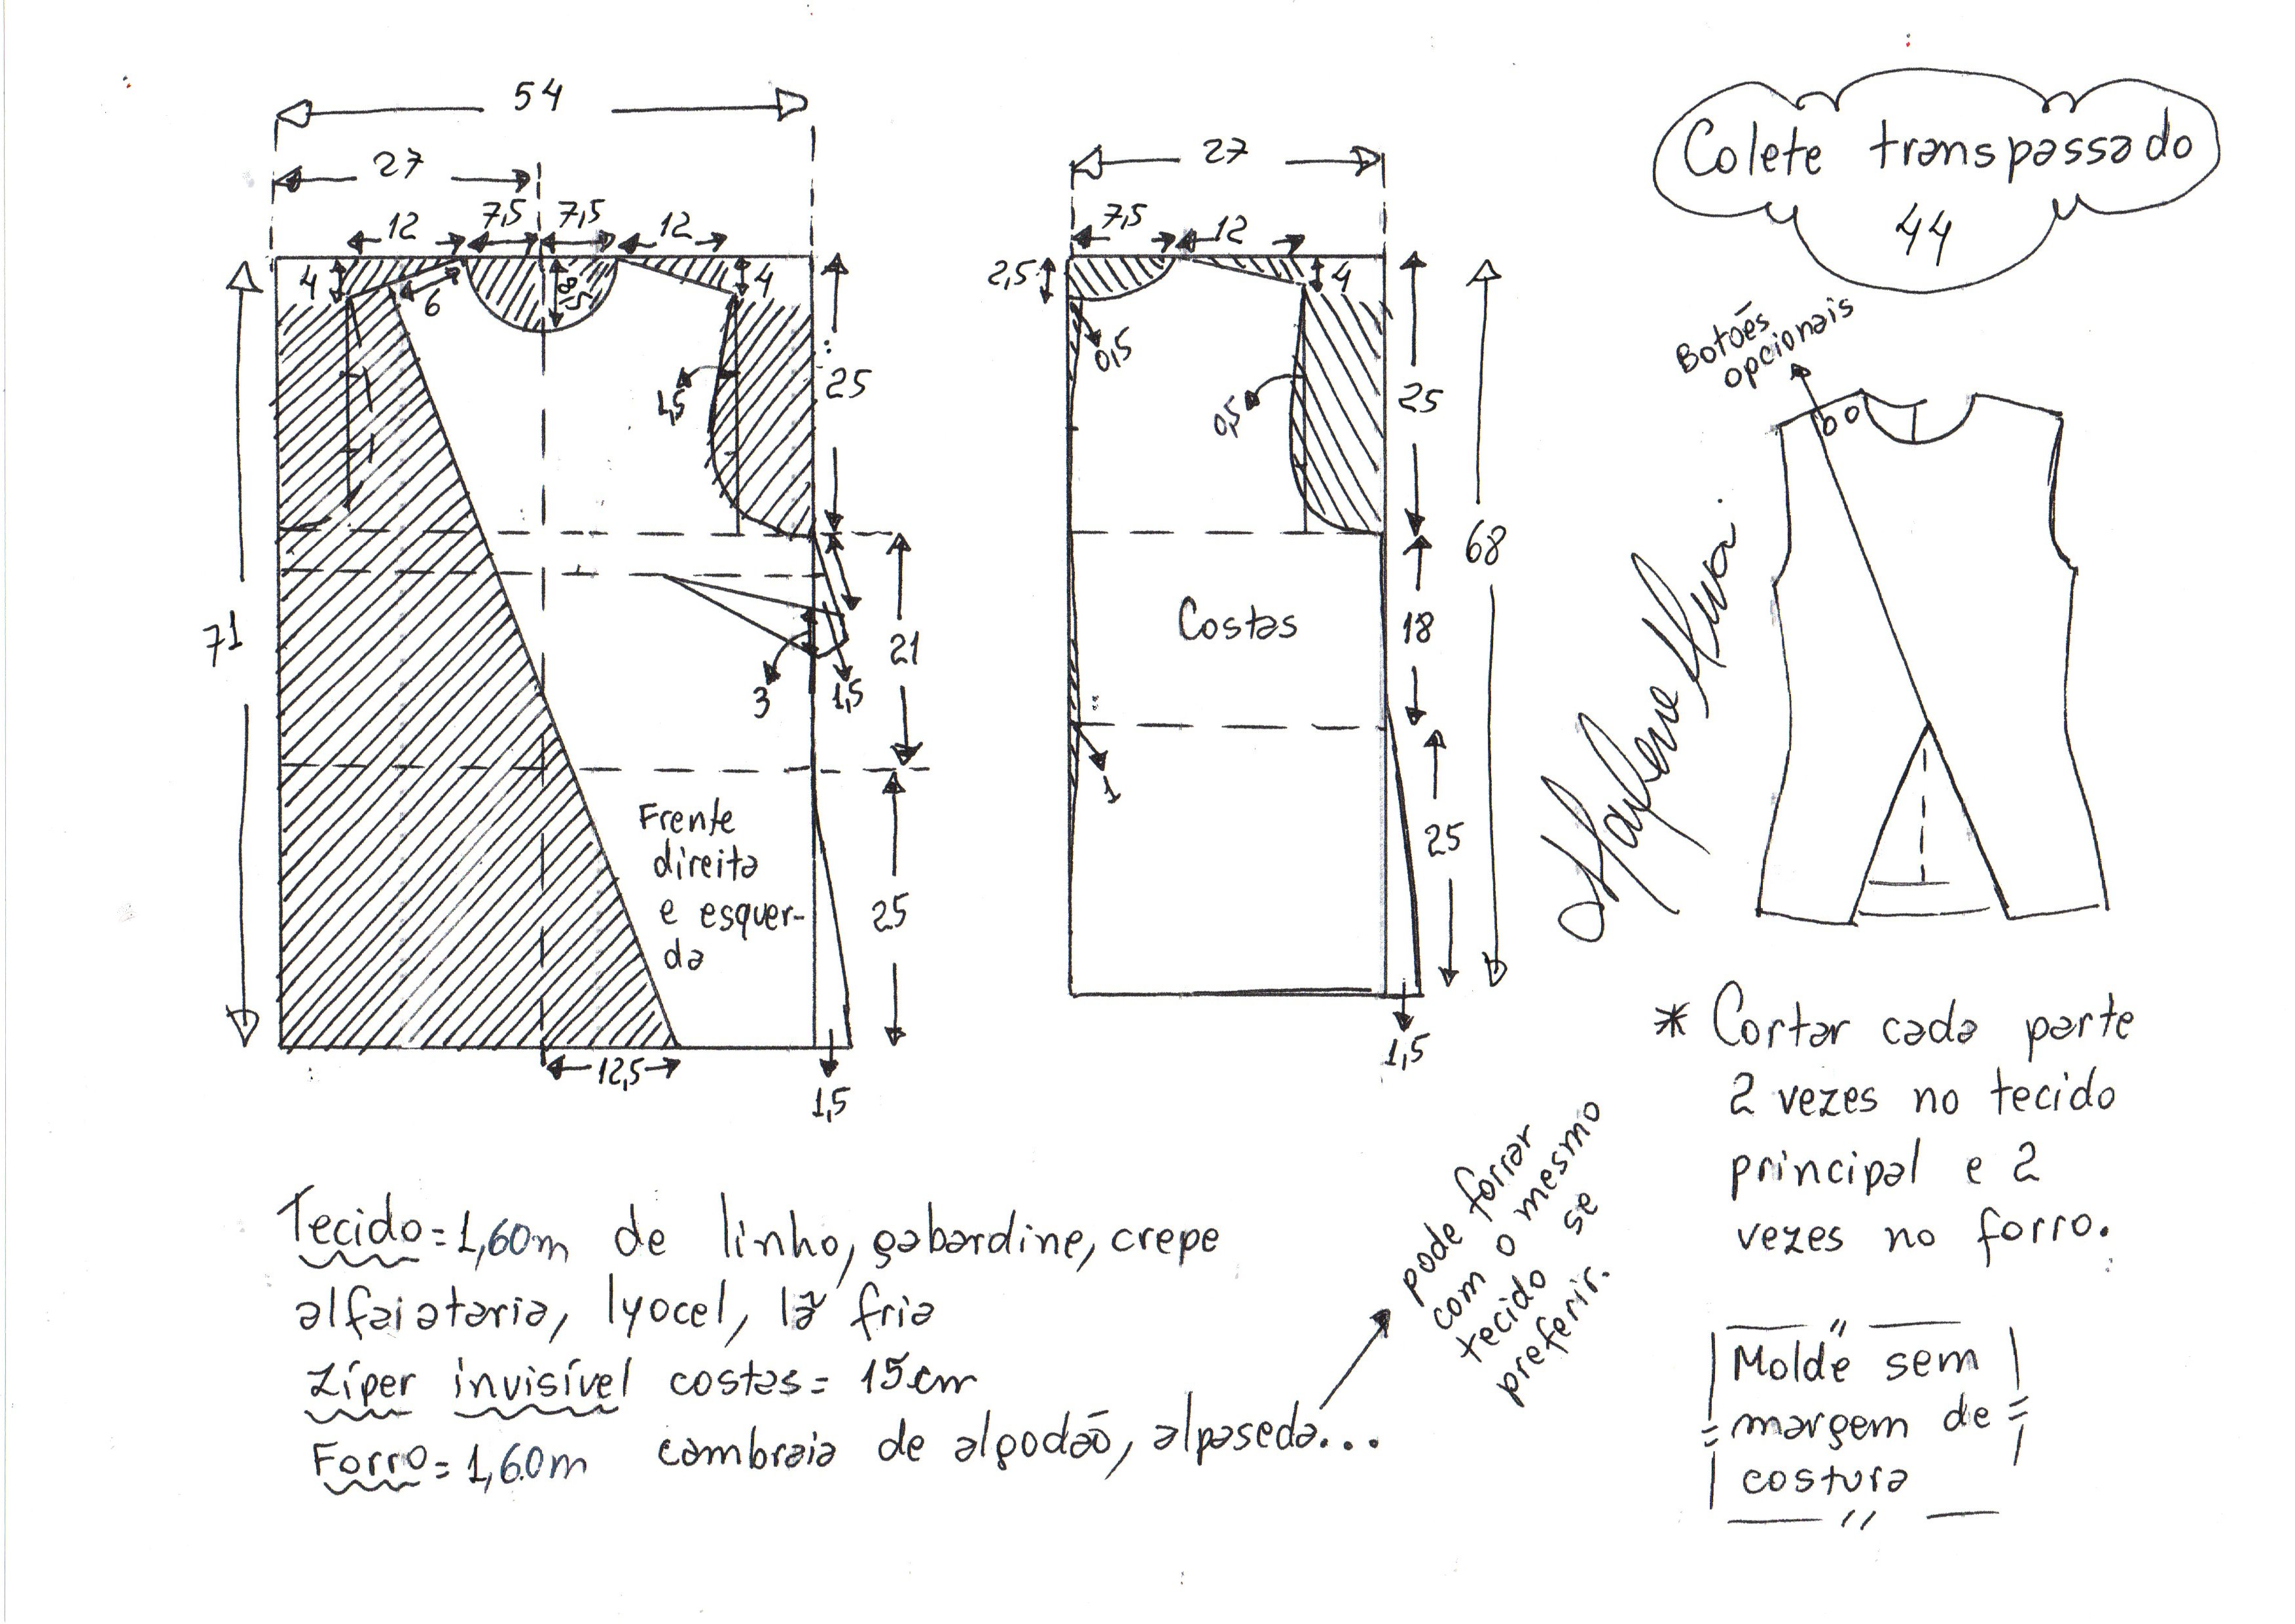 54
27
12
7,5
7,5
12
4
6
8,5
4
1,5
25
71
21
3
1,5
Frente
direita
e esquer-
da
25
12,5
1,5
27
7,5
12
2,5
4
0,5
0,5
25
68
Costas
18
1
25
1,5
Colete transpassado
44
Botões
opcionais
* Cortar cada parte
2 vezes no tecido
principal e 2
vezes no forro.
Molde sem
margem de
costura
Tecido = 1,60m de linho, gabardine, crepe
alfaiataria, lyocel, lã fria
Zíper invisível costas = 15cm
Forro = 1,60m cambraia de algodão, alpaseda...
pode forrar
com o mesmo
tecido se
preferir.